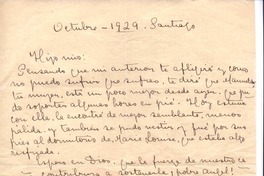 Octubre - 1929. Santiago
Hijo mio:
Pensando que mi anterior te afligirá y como
no puedo sufrir que sufras, te diré que Manuela,
tu mujer, está un poco mejor desde ayer. Ha po-
do soportar algunas horas en pié. Hoy estuve
con ella: le encontré de mejor semblante, menos
pálida. y también se pudo vestir y fué por sus
pies al dormitorio de Marie Louise, que estaba algo
resfriada.
Espero en Dios, que la fuerza de nuestro ca-
contribuya a sobrellevar, ¡pobre ángel!